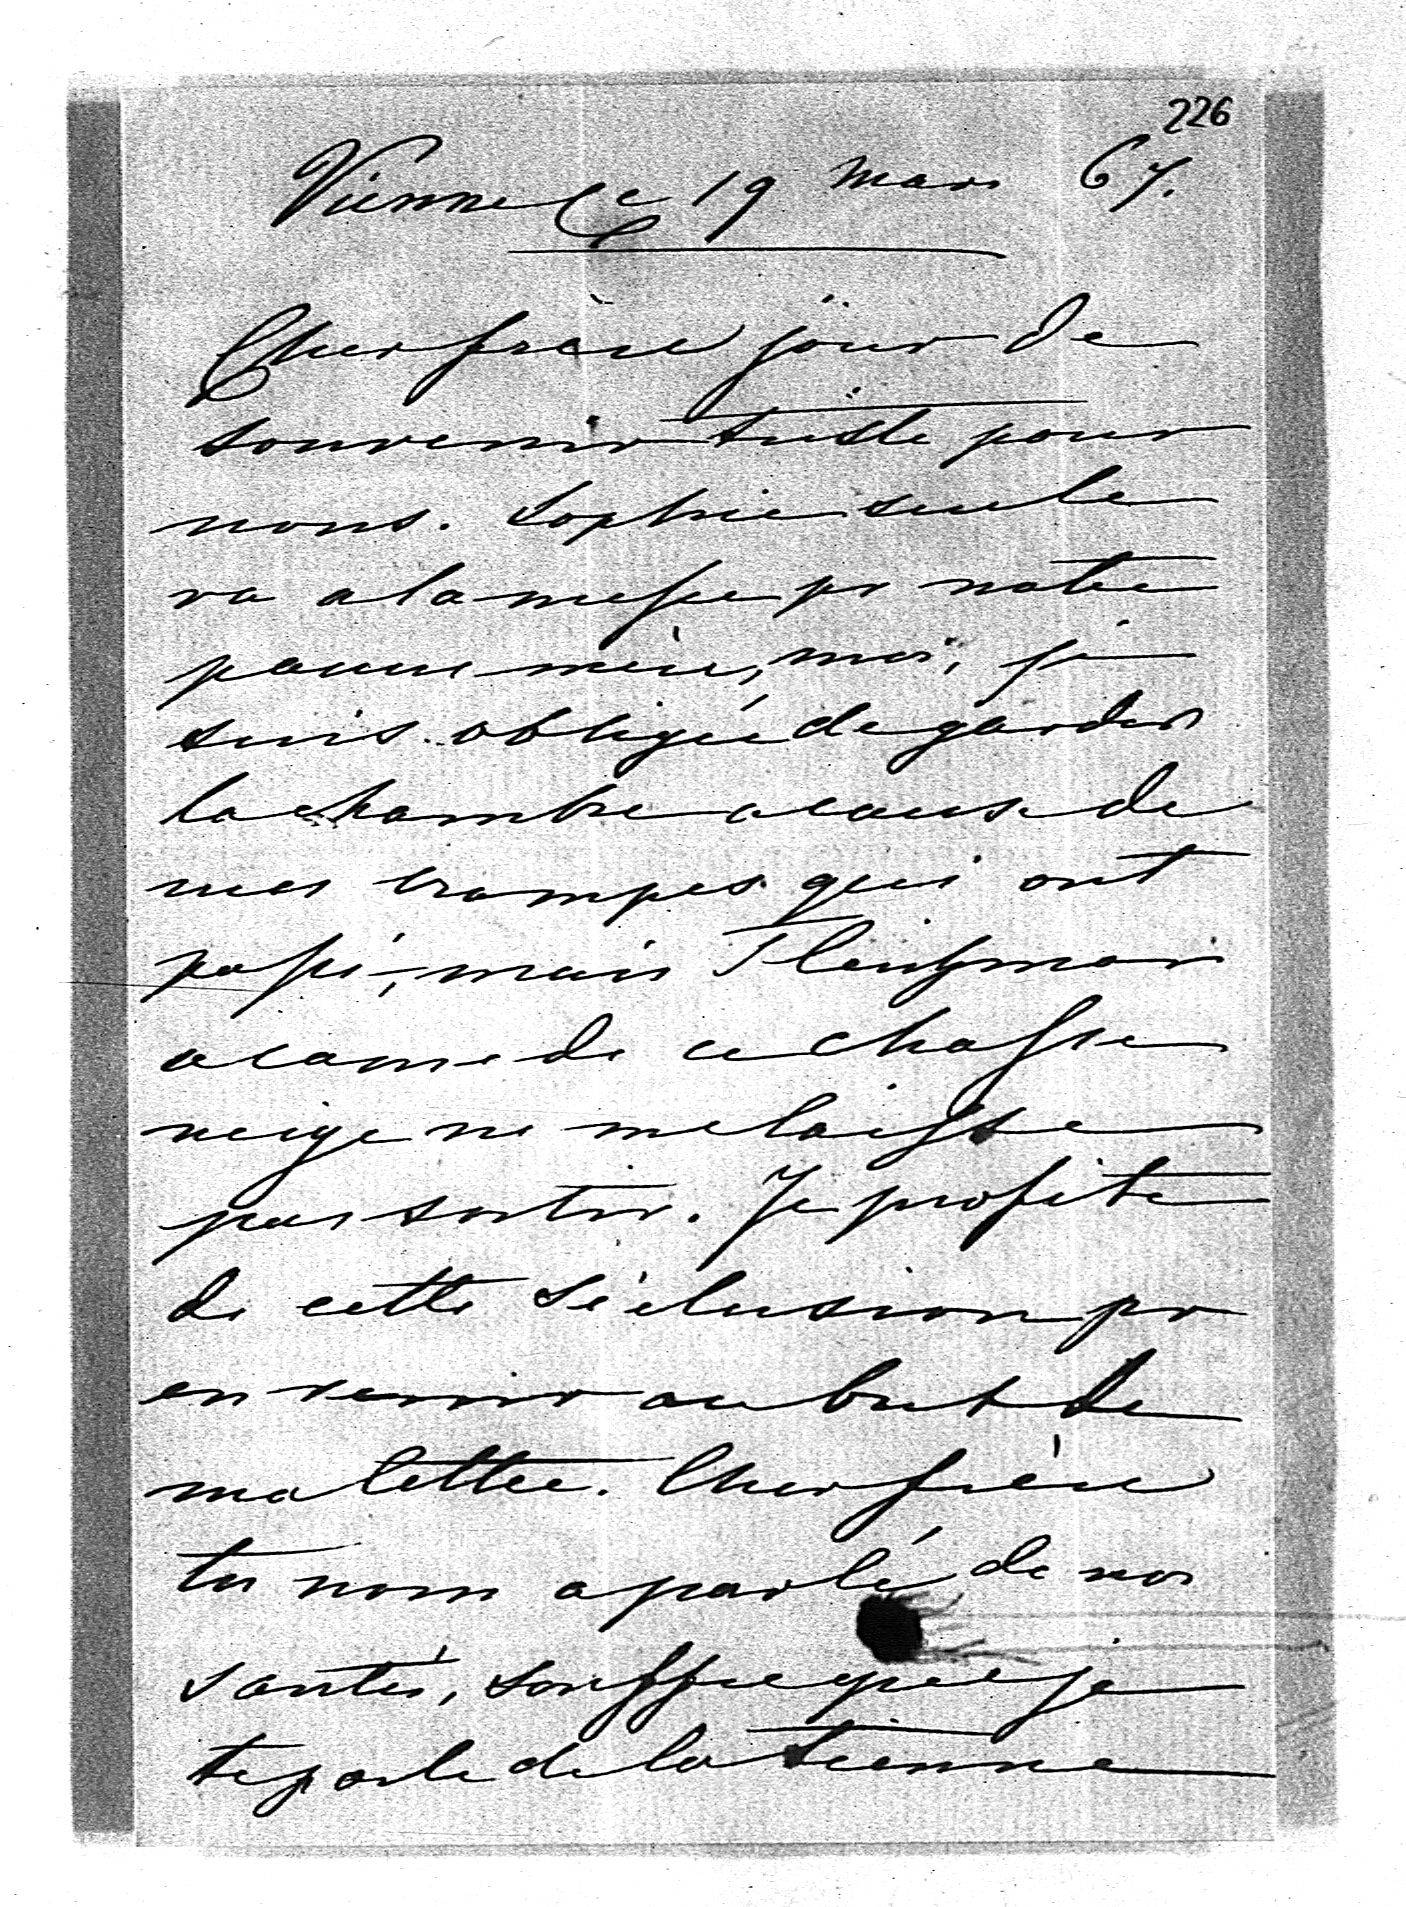 226
Vienne Le 19 Mars 67.
Cher frère jour de
souvenir triste pour
nous. Sophie seule
va a la messe pr notre
pauvre mère, moi, je
suis obligée de garder
la chambre a cause de
mes crampes qui ont
passé, mais
a cause de ce chasse
neige ne me laisse
pas sortir. Je profite
de cette séclusion pr
en venir au but de
ma lettre. Cher frère
tu nous a parlé de nos
santés, souffre que je
te parle de la tienne